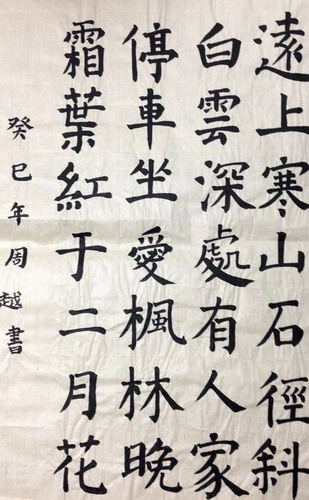 遠上寒山石徑斜
白雲深處有人家
停車坐愛楓林晚
霜葉紅于二月花
癸巳年周越書